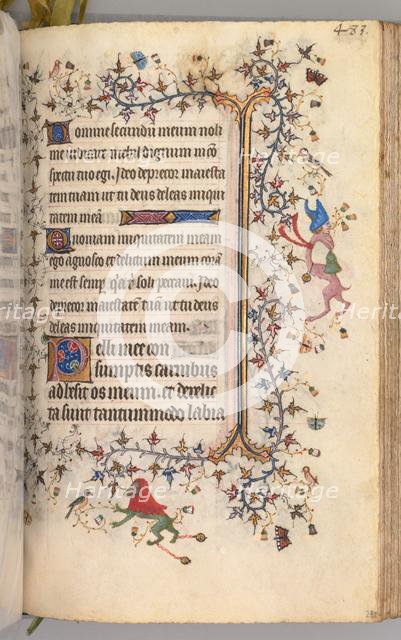 483.
Domine secundū meum noli
me iudicare nichil dignum in cō
spectu tuo egi. Ideo deprecor maiesta
tem tuam ut tu deus deleas iniqui
tatem meā
Quoniam iniquitatem meam
ego agnosco et delictum meum corā
me est semp
soli peccaui. Ideo
deprecor maiestatē tuā ut tu deus
deleas iniquitatem meam.
Pelli mee con
sumptis carnibus
adhesit os meum. et derelic
ta sunt tantummodo labia
Heritage
Images